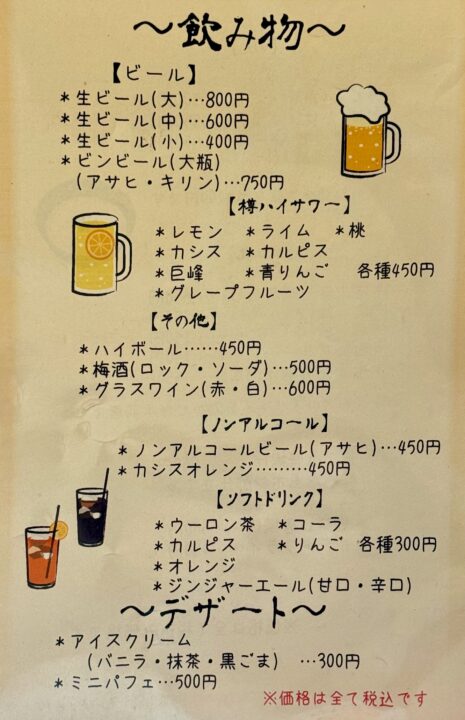 ～飲み物～
【ビール】
＊生ビール(大)…800円
＊生ビール(中)…600円
＊生ビール(小)…400円
＊ビンビール(大瓶)
(アサヒ・キリン)…750円
【樽ハイサワー】
＊レモン ＊ライム ＊桃
＊カシス ＊カルピス
＊巨峰 ＊青りんご 各種450円
＊グレープフルーツ
【その他】
＊ハイボール……450円
＊梅酒(ロック・ソーダ)…500円
＊グラスワイン(赤・白)…600円
【ノンアルコール】
＊ノンアルコールビール(アサヒ)…450円
＊カシスオレンジ………450円
【ソフトドリンク】
＊ウーロン茶 ＊コーラ
＊カルピス ＊りんご 各種300円
＊オレンジ
＊ジンジャーエール(甘口・辛口)
～デザート～
＊アイスクリーム
(バニラ・抹茶・黒ごま) …300円
＊ミニパフェ…500円
※価格は全て税込です